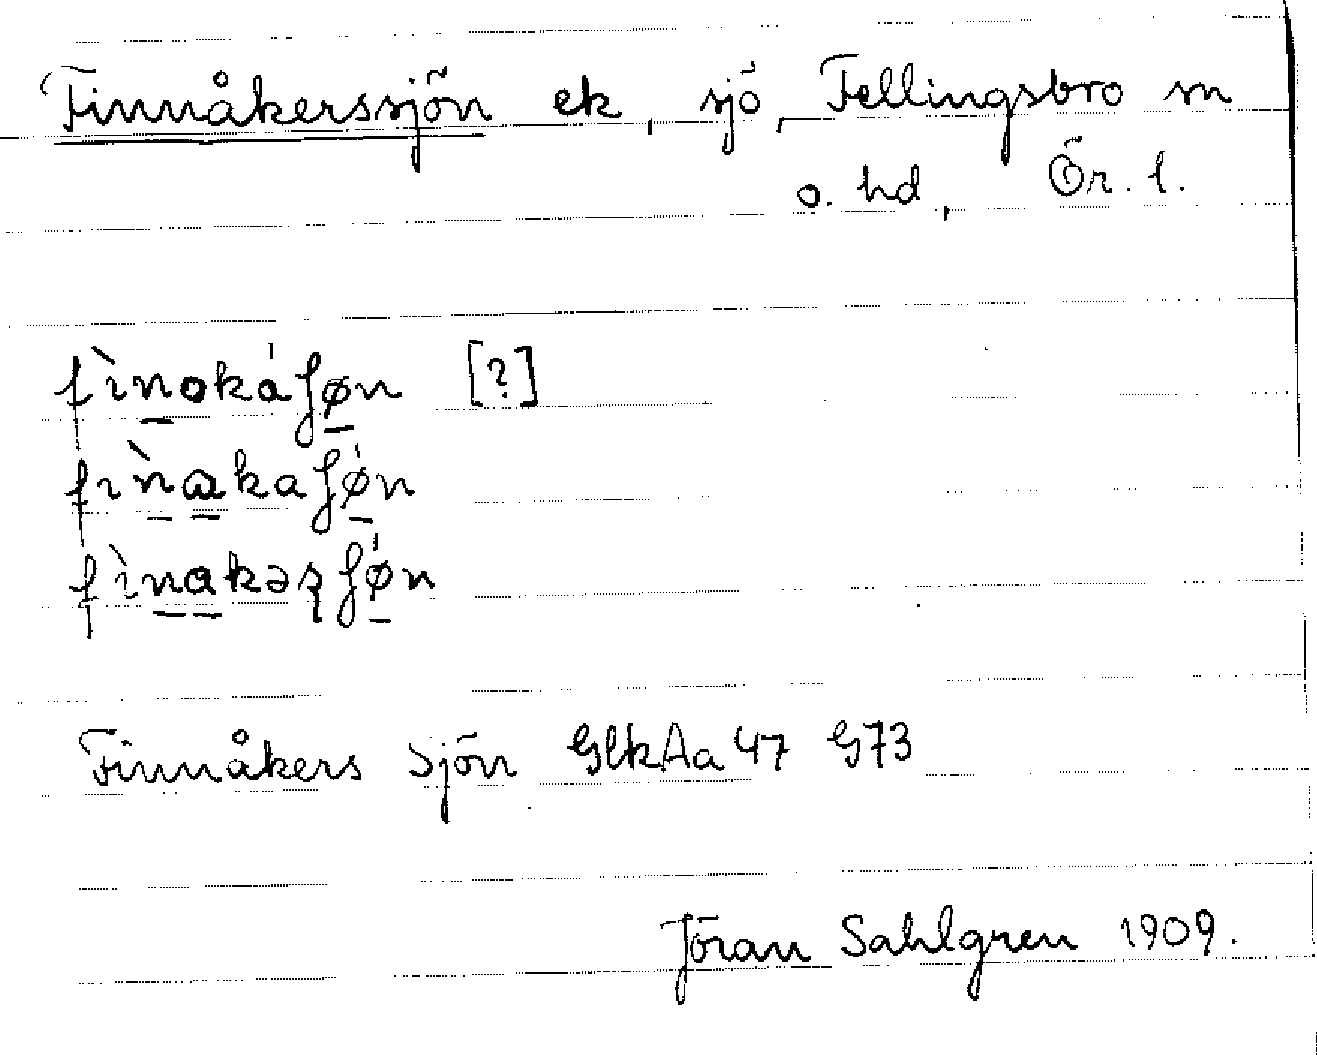 Finnåkerssjön ek, sjö, Fellingsbro sn
o. hd, Ör. l.
fìnokáʃøn [?]
fìnakaʃǿn
fìnakəʂʃǿn
Finnåkers Sjön GlkAa 47 G73
Jöran Sahlgren 1909.